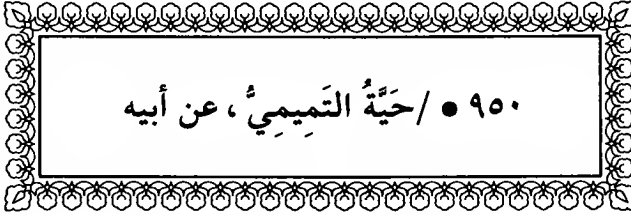 ٩٥٠ • / حَيَّةُ التَمِيمِيُّ ، عن أبيه